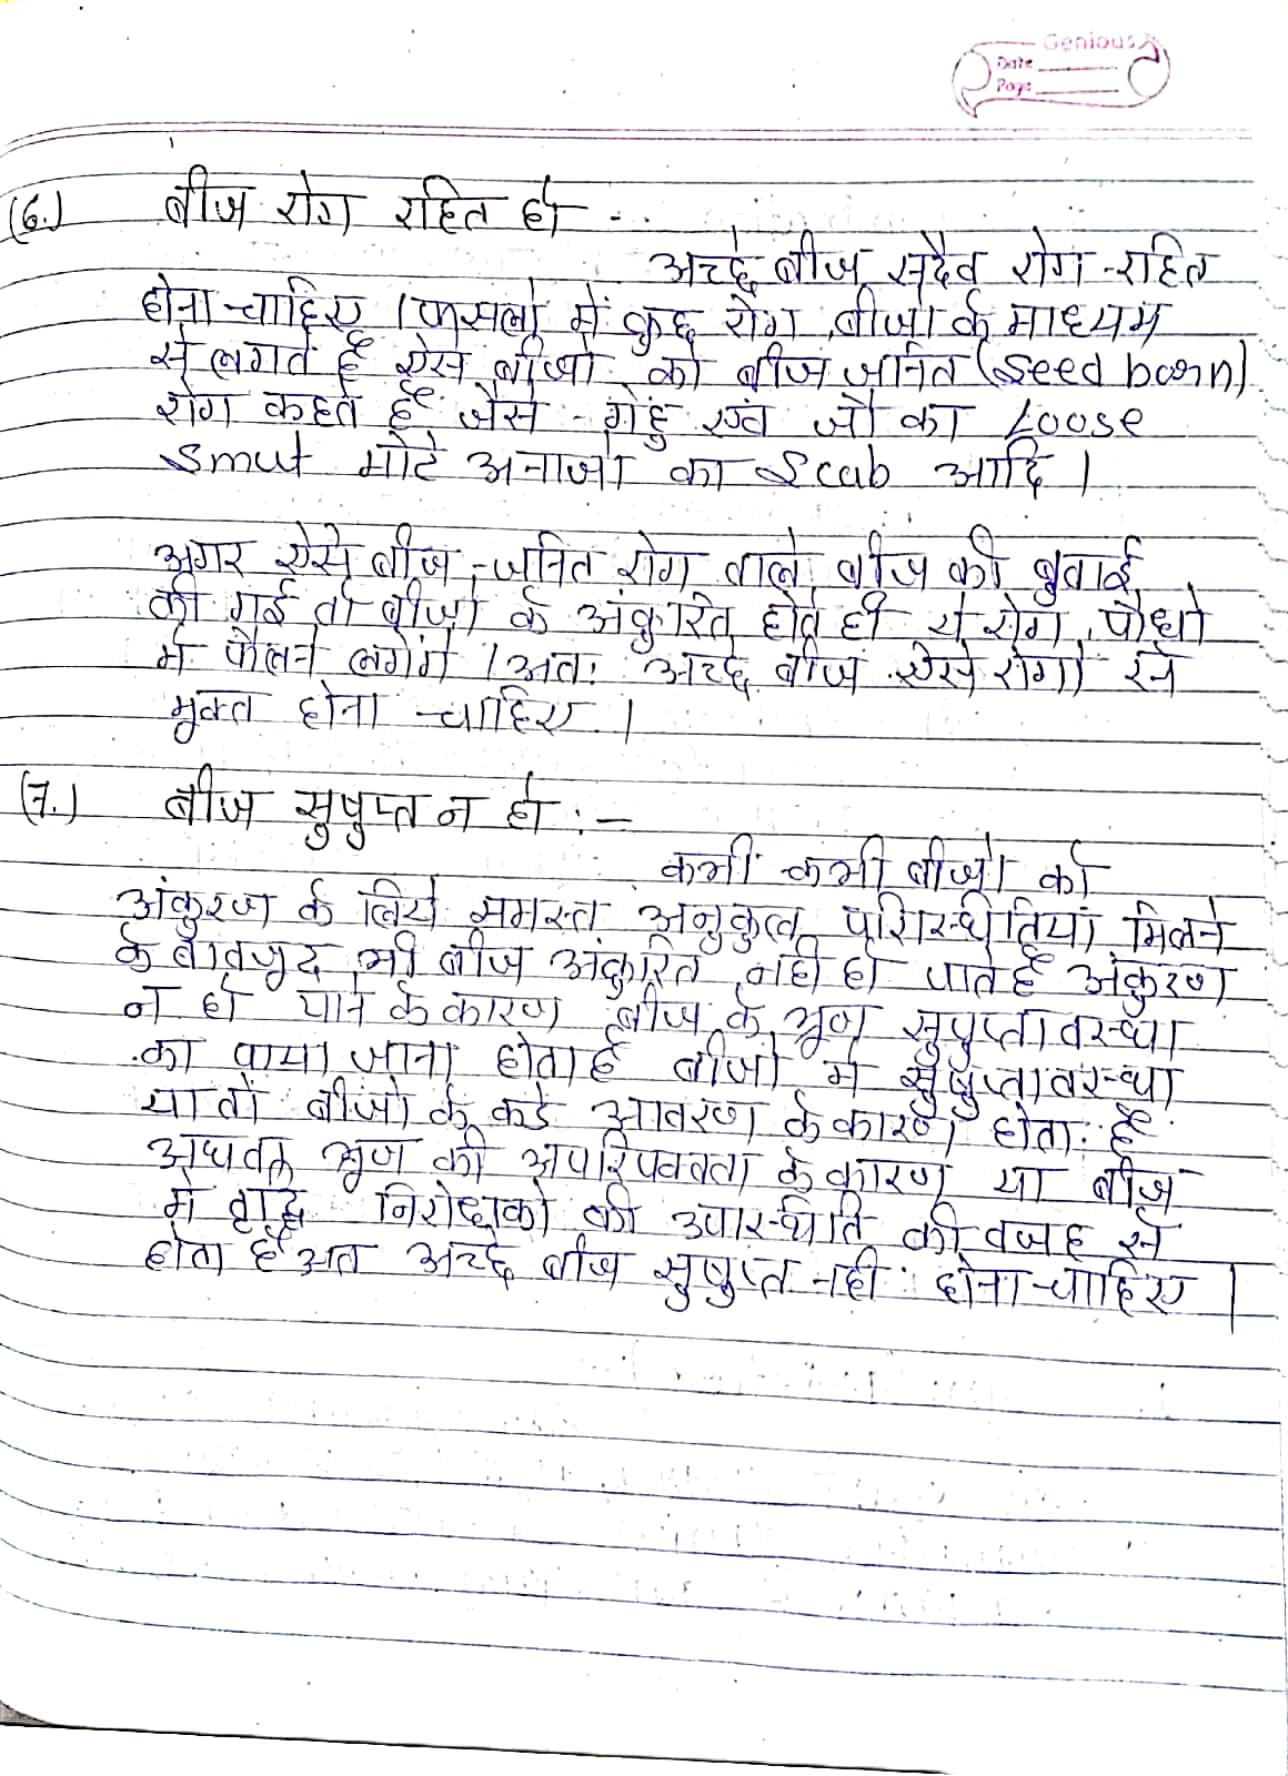 Genious
Date
Page
(6.) बीज रोग रहित हो -
अच्छे बीज सदैव रोग-रहित
होना चाहिए। फसलो में कुछ रोग बीजो के माध्यम
से लगते है ऐसे बीजो को बीज जनित (Seed born)
रोग कहते है जैसे - गेहुं एवं जौ का Loose
Smut मोटे अनाजो का Scab आदि।
अगर ऐसे बीज-जनित रोग वाले बीज की बुवाई
की गई तो बीजो के अंकुरित होते ही ये रोग पोधो
मे फैलने लगेगे। अतः अच्छे बीज ऐसे रोगो से
मुक्त होना चाहिए।
(7.) बीज सुषुप्त न हो :-
कभी कभी बीजो को
अंकुरण के लिये समस्त अनुकुल परिास्थितियां मिलने
के बावजुद भी बीज अंकुरित नही हो पाते है अंकुरण
न हो पाने के कारण बीज के भ्रूण सुषुप्तावस्था
का पाया जाना होता है बीजो मे सुषुप्तावस्था
या तो बीजो के कडे आवरण के कारण होता है
अथवा भ्रूण की अपरिपक्वता के कारण या बीज
मे वृद्धि निरोधको की उपस्थिति की वजह से
होता है अत अच्छे बीज सुषुप्त नही होना चाहिए।